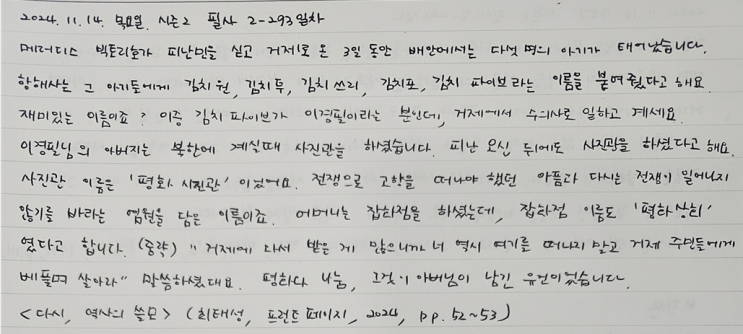 2024. 11. 14. 목요일. 시즌2 필사 2-293일차
메러디스 빅토리호가 피난민을 싣고 거제로 온 3일 동안 배안에서는 다섯 명의 아기가 태어났습니다.
항해사는 그 아기들에게 김치 원, 김치 투, 김치 쓰리, 김치포, 김치 파이브라는 이름을 붙여 줬다고 해요.
재미있는 이름이죠? 이중 김치 파이브가 이경필이라는 분인데, 거제에서 수의사로 일하고 계세요.
이경필님의 아버지는 북한에 계실때 사진관을 하셨습니다. 피난 오신 뒤에도 사진관을 하셨다고 해요.
사진관 이름은 '평화 사진관' 이었어요. 전쟁으로 고향을 떠나야 했던 아픔과 다시는 전쟁이 일어나지
않기를 바라는 염원을 담은 이름이죠. 어머니는 잡화점을 하셨는데, 잡화점 이름도 '평화상회'
였다고 합니다. (중략) "거제에 다서 받은 게 많으니까 너 역시 여기를 떠나지 말고 거제 주민들에게
베풀며 살아라" 말씀하셨대요. 평화와 나눔, 그것이 아버님이 남긴 유언이었습니다.
<다시, 역사의 쓸모> (최태성, 프런트페이지, 2024, pp. 52~53)